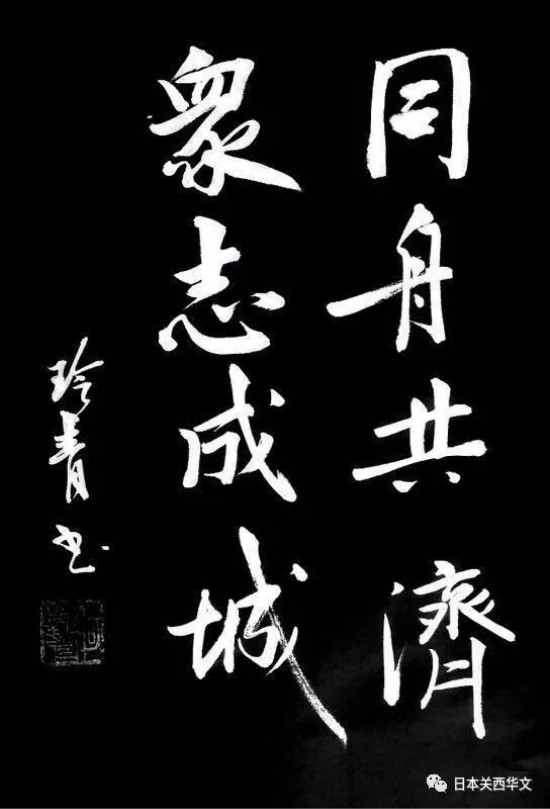 同舟共濟
衆志成城
玲青书
日本关西华文